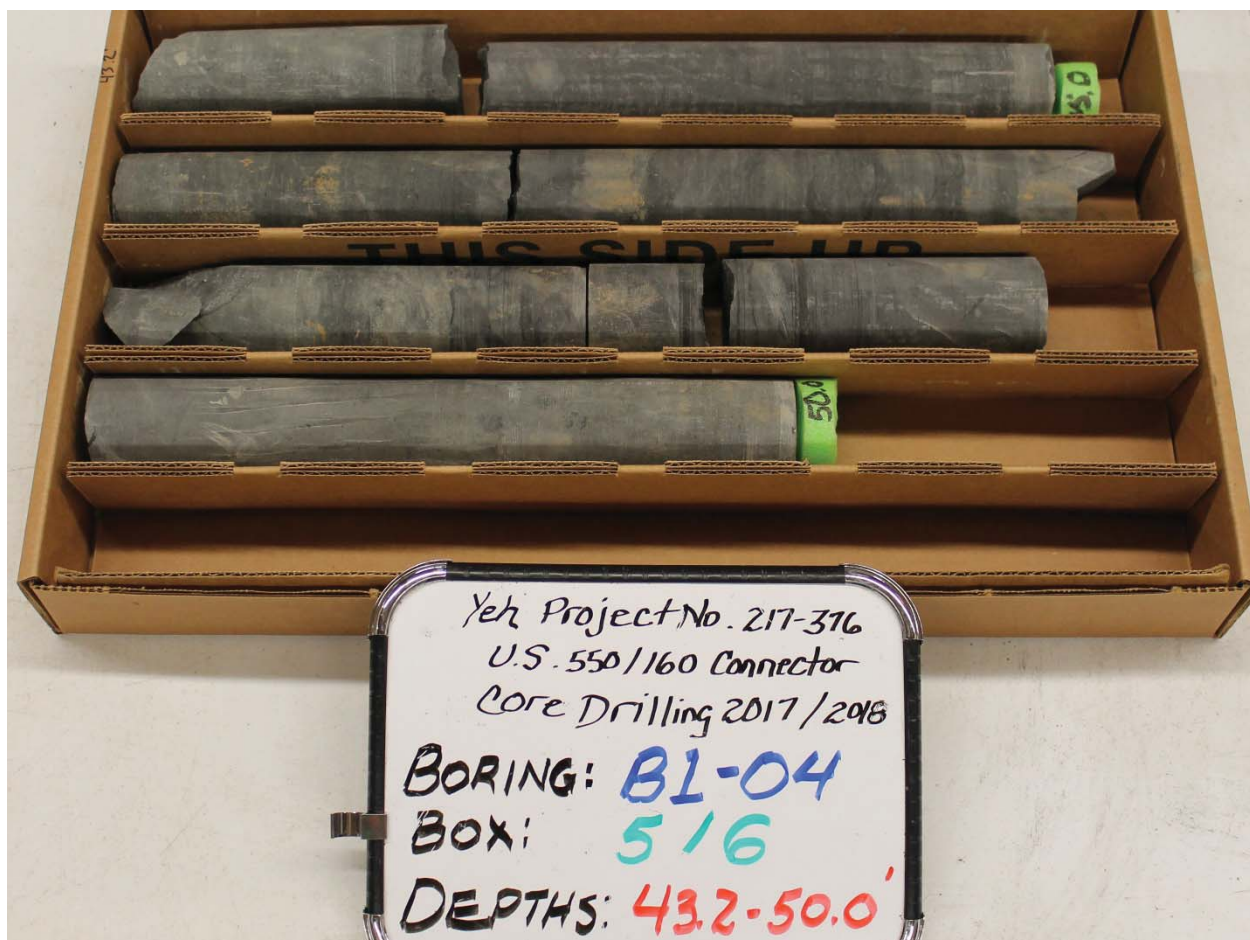 43.2'
5.0
THIS SIDE UP
50.0
Yeh Project No. 217-376
U.S. 550/160 Connector
Core Drilling 2017/2018
BORING: B1-04
BOX: 5/6
DEPTHS: 43.2-50.0'